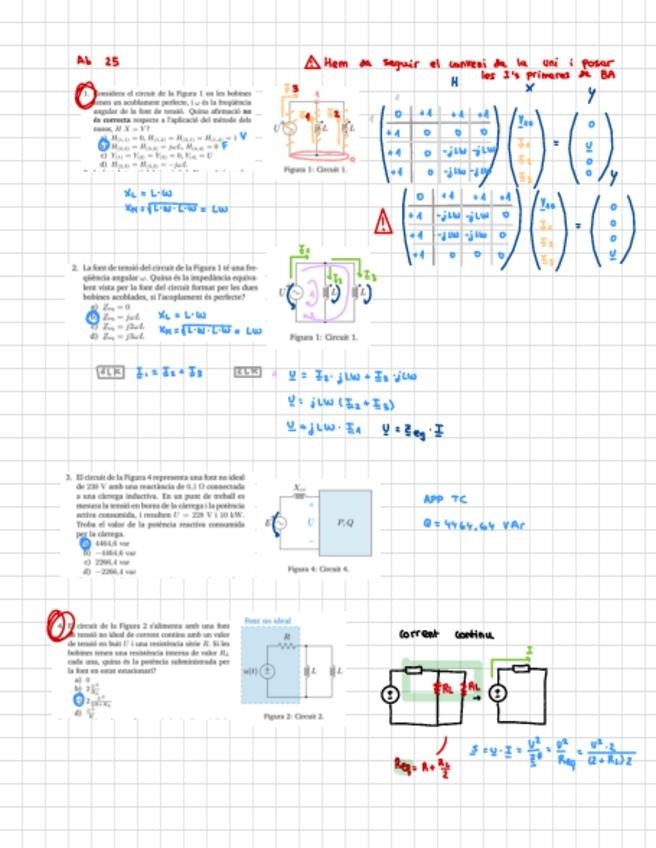 Ab 25
⚠ Hem de seguir el conveni de la uni i posar
les I's primeres de BA
H X Y
1. Considera el circuit de la Figura 1 en les bobines
tenen un acoblament perfecte, i ω és la freqüència
angular de la font de tensió. Quina afirmació no
és correcta respecte a l'aplicació del mètode dels
nusos, H X = Y?
c) Y(1) = Y(2) = Y(3) = 0, Y(4) = U
Figura 1: Circuit 1.
0 +1 +1 +1
+1 0 0 0
+1 0 -jLω -jLω
+1 0 -jLω -jLω
0
U
0
0
XL = L·ω
XM = √(L·ω·L·ω) = Lω
0 +1 +1 +1
+1 -jLω -jLω 0
+1 -jLω -jLω 0
+1 0 0 0
0
0
0
U
2. La font de tensió del circuit de la Figura 1 té una fre-
qüència angular ω. Quina és la impedància equiva-
lent vista per la font del circuit format per les dues
bobines acoblades, si l'acoblament és perfecte?
a) Zeq = 0
b) Zeq = jωL
c) Zeq = j2ωL
d) Zeq = j3ωL
XL = L·ω
XM = √(L·ω·L·ω) = Lω
Figura 1: Circuit 1.
I1 = I2 + I3
U = I2 · jLω + I3 · jLω
U = jLω (I2 + I3)
U = jLω · I1 U = Zeq · I
3. El circuit de la Figura 4 representa una font no ideal
de 230 V amb una reactància de 0,1 Ω connectada
a una càrrega inductiva. En un punt de treball es
mesura la tensió en borns de la càrrega i la potència
activa consumida, i resulten U = 228 V i 10 kW.
Troba el valor de la potència reactiva consumida
per la càrrega.
a) 4464,6 var
b) −4464,6 var
c) 2266,4 var
d) −2266,4 var
E U P, Q
Figura 4: Circuit 4.
APP TC
Q = 4464,64 VAr
4. El circuit de la Figura 2 s'alimenta amb una font
de tensió no ideal de corrent continu amb un valor
de tensió en buit U i una resistència sèrie R. Si les
bobines tenen una resistència interna de valor RL
cada una, quina és la potència subministrada per
la font en estat estacionari?
a) 0
Font no ideal
R
u(t) L L
Figura 2: Circuit 2.
corrent continu
RL RL
I
Req = R + RL/2
S = U · I = U²/Z* = U²/Req = U²·2/(2+RL)2